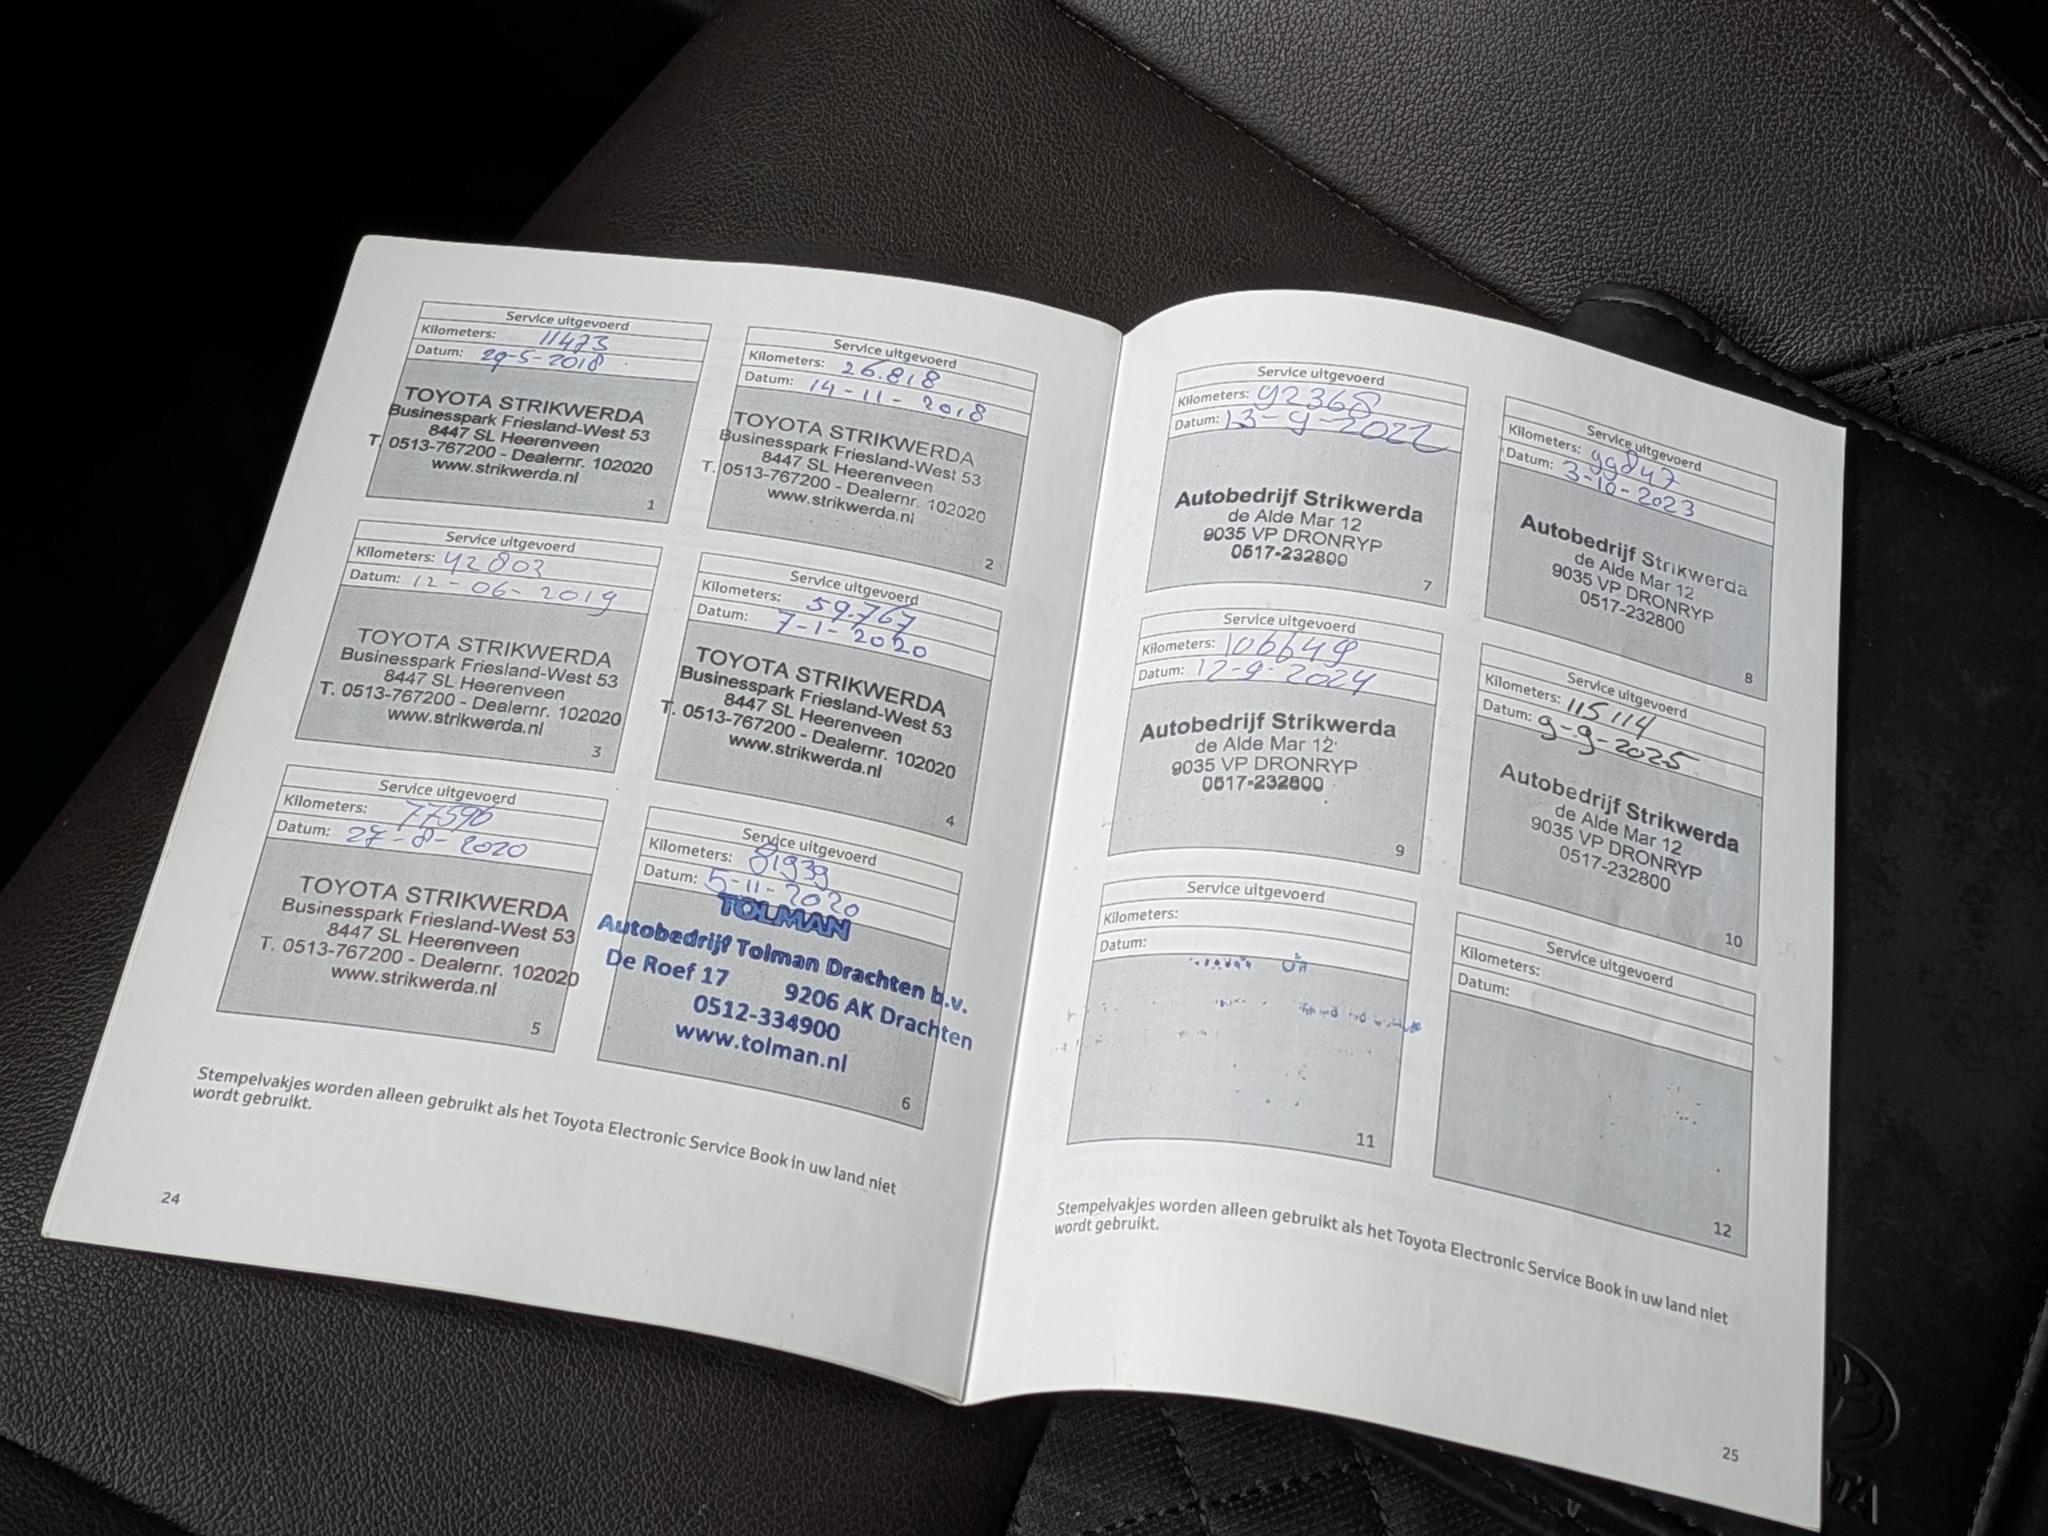 Service uitgevoerd
Kilometers: 11473
Datum: 29-5-2018
TOYOTA STRIKWERDA
Businesspark Friesland-West 53
8447 SL Heerenveen
T. 0513-767200 - Dealernr. 102020
www.strikwerda.nl
1
Service uitgevoerd
Kilometers: 26.818
Datum: 14-11-2018
TOYOTA STRIKWERDA
Businesspark Friesland-West 53
8447 SL Heerenveen
T. 0513-767200 - Dealernr. 102020
www.strikwerda.nl
2
Service uitgevoerd
Kilometers: 42803
Datum: 12-06-2019
TOYOTA STRIKWERDA
Businesspark Friesland-West 53
8447 SL Heerenveen
T. 0513-767200 - Dealernr. 102020
www.strikwerda.nl
3
Service uitgevoerd
Kilometers: 59.767
Datum: 7-1-2020
TOYOTA STRIKWERDA
Businesspark Friesland-West 53
8447 SL Heerenveen
T. 0513-767200 - Dealernr. 102020
www.strikwerda.nl
4
Service uitgevoerd
Kilometers: 77596
Datum: 27-8-2020
TOYOTA STRIKWERDA
Businesspark Friesland-West 53
8447 SL Heerenveen
T. 0513-767200 - Dealernr. 102020
www.strikwerda.nl
5
Service uitgevoerd
Kilometers: 81939
Datum: 5-11-2020
TOLMAN
Autobedrijf Tolman Drachten b.v.
De Roef 17 9206 AK Drachten
0512-334900
www.tolman.nl
6
Stempelvakjes worden alleen gebruikt als het Toyota Electronic Service Book in uw land niet
wordt gebruikt.
24
Service uitgevoerd
Kilometers: 92368
Datum: 13-9-2022
Autobedrijf Strikwerda
de Alde Mar 12
9035 VP DRONRYP
0517-232800
7
Service uitgevoerd
Kilometers: 99847
Datum: 3-10-2023
Autobedrijf Strikwerda
de Alde Mar 12
9035 VP DRONRYP
0517-232800
8
Service uitgevoerd
Kilometers: 106649
Datum: 12-9-2024
Autobedrijf Strikwerda
de Alde Mar 12
9035 VP DRONRYP
0517-232800
9
Service uitgevoerd
Kilometers: 115114
Datum: 9-9-2025
Autobedrijf Strikwerda
de Alde Mar 12
9035 VP DRONRYP
0517-232800
10
Service uitgevoerd
Kilometers:
Datum:
11
Service uitgevoerd
Kilometers:
Datum:
12
Stempelvakjes worden alleen gebruikt als het Toyota Electronic Service Book in uw land niet
wordt gebruikt.
25